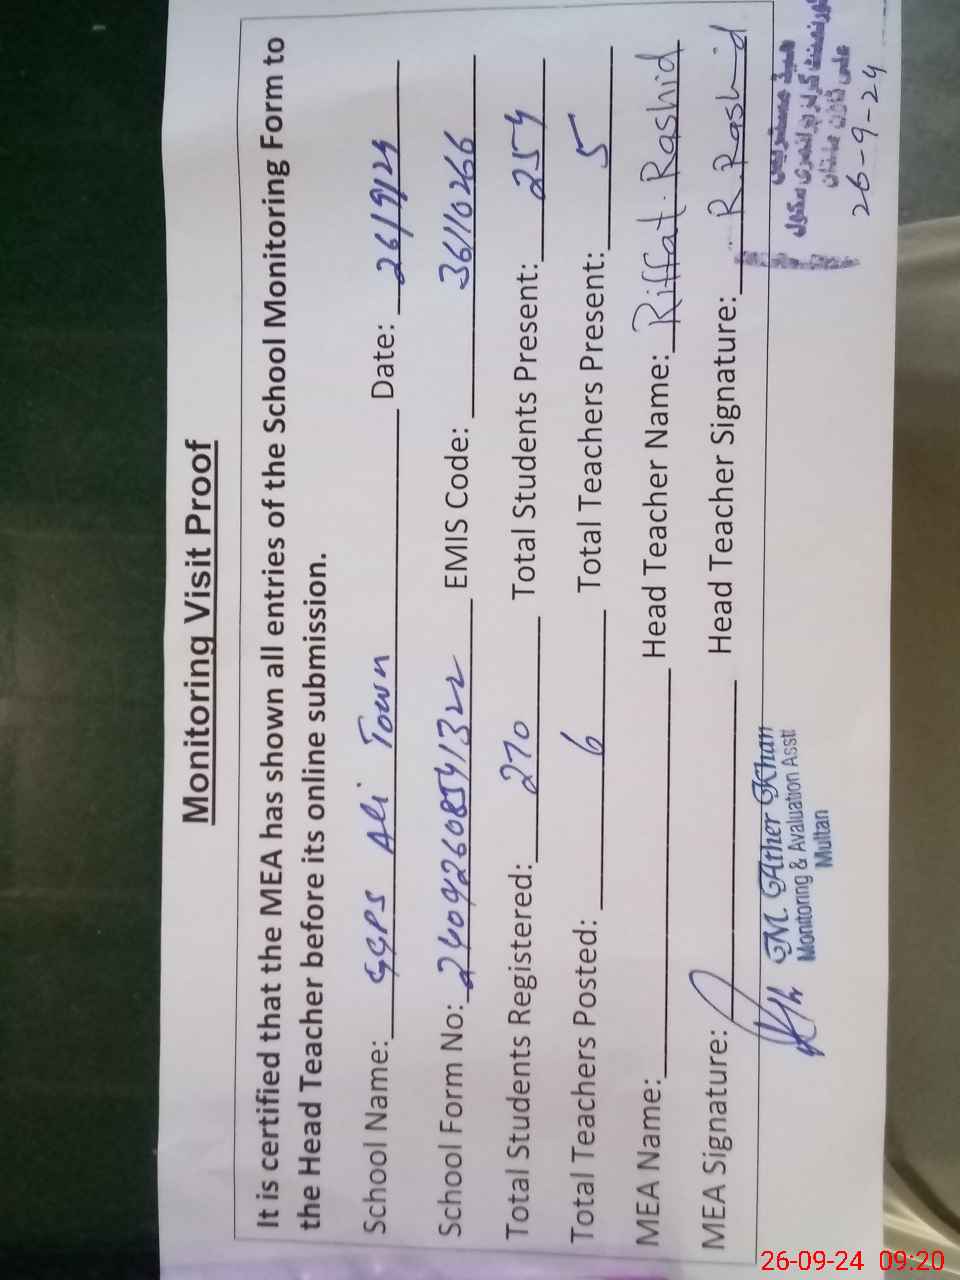 Monitoring Visit Proof
It is certified that the MEA has shown all entries of the School Monitoring Form to
the Head Teacher before its online submission.
School Name: GGPS Ali Town Date: 26/9/24
School Form No: 24092608541322 EMIS Code: 36110266
Total Students Registered: 270 Total Students Present: 254
Total Teachers Posted: 6 Total Teachers Present: 5
MEA Name: Head Teacher Name: Riffat Rashid
MEA Signature: Head Teacher Signature: R Rashid
M. Ather Khan
Monitoring & Avaluation Asstt
Multan
ہیڈ مسٹریس
گورنمنٹ گرلز پرائمری سکول
علی ٹاؤن ملتان
26-9-24
26-09-24 09:20